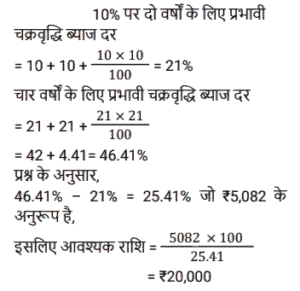 10% पर दो वर्षों के लिए प्रभावी
चक्रवृद्धि ब्याज दर
= 10 + 10 + \frac{10 × 10}{100} = 21%
चार वर्षों के लिए प्रभावी चक्रवृद्धि ब्याज दर
= 21 + 21 + \frac{21 × 21}{100}
= 42 + 4.41= 46.41%
प्रश्न के अनुसार,
46.41% − 21% = 25.41% जो ₹5,082 के
अनुरूप है,
इसलिए आवश्यक राशि = \frac{5082 × 100}{25.41}
= ₹20,000